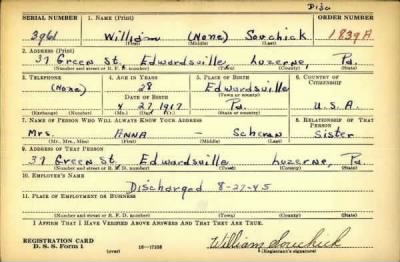 Disa
SERIAL NUMBER 1. NAME (Print) ORDER NUMBER
3961 William (None) Sovchick 1839A
(First) (Middle) (Last)
2. ADDRESS (Print)
37 Green St. Edwardsville Luzerne, Pa.
(Number and street or R. F. D. number) (Town) (County) (State)
3. TELEPHONE 4. AGE IN YEARS 5. PLACE OF BIRTH 6. COUNTRY OF CITIZENSHIP
(None) 28 Edwardsville
DATE OF BIRTH (Town or county)
4 27 1917 Pa. U.S.A.
(Exchange) (Number) (Mo.) (Day) (Yr.) (State or country)
7. NAME OF PERSON WHO WILL ALWAYS KNOW YOUR ADDRESS 8. RELATIONSHIP OF THAT PERSON
Mrs. ANNA - Scheran Sister
(Mr., Mrs., Miss) (First) (Middle) (Last)
9. ADDRESS OF THAT PERSON
37 Green St. Edwardsville Luzerne, Pa.
(Number and street or R. F. D. number) (Town) (County) (State)
10. EMPLOYER'S NAME
Discharged 8-27-45
11. PLACE OF EMPLOYMENT OR BUSINESS
(Number and street or R. F. D. number) (Town) (County) (State)
I AFFIRM THAT I HAVE VERIFIED ABOVE ANSWERS AND THAT THEY ARE TRUE.
REGISTRATION CARD
D. S. S. Form 1 (over) 16-17105 William Sovchick
(Registrant's signature)